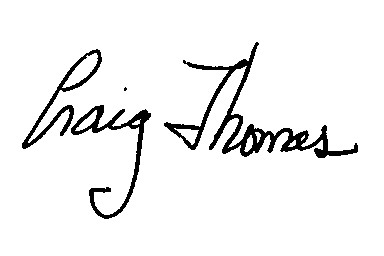 Craig Thomas